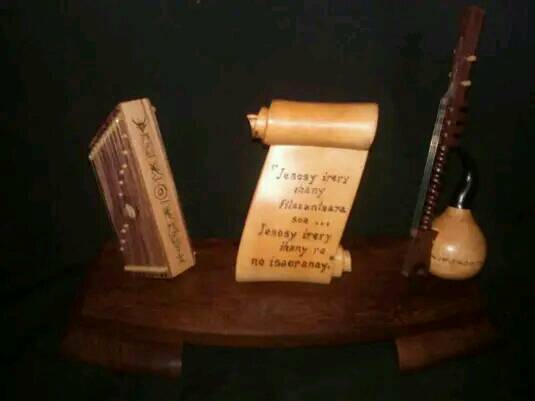 "Jesosy irery
ihany
Filazantsara
soa ...
Jesosy irery
ihany no
no isaoranay."